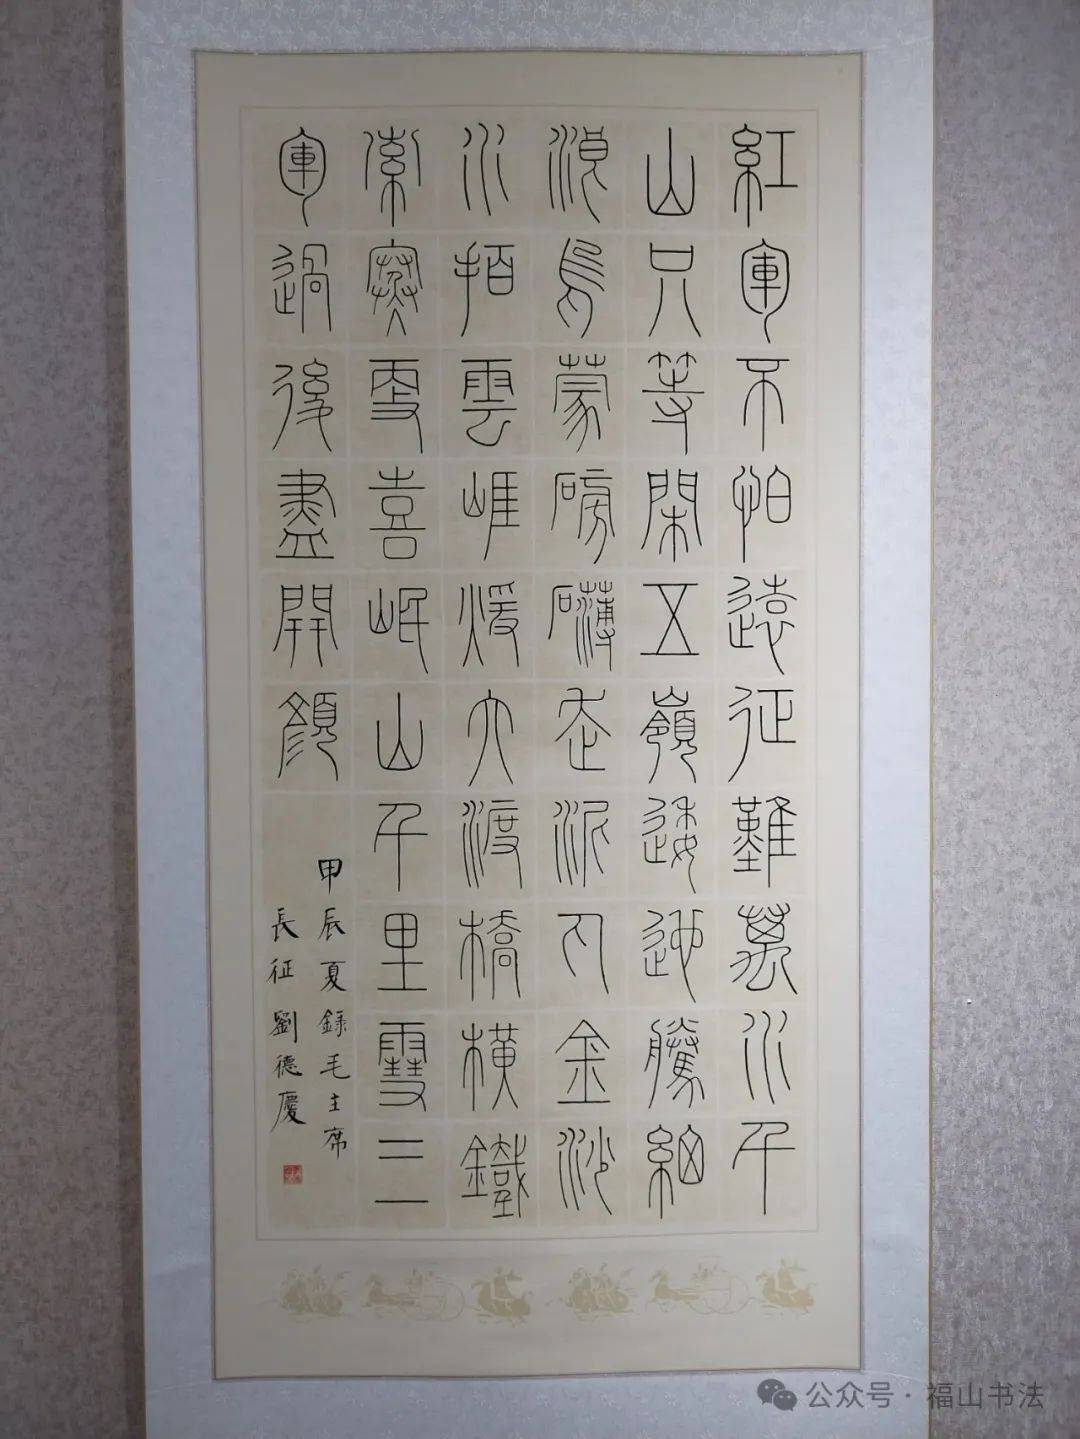 紅軍不怕遠征難萬水千
山只等閑五嶺逶迤騰細
浪烏蒙磅礴走泥丸金沙
水拍雲崖煖大渡橋橫鐵
索寒更喜岷山千里雪三
軍過後盡開顏
甲辰夏錄毛主席
長征劉德慶
公众号 · 福山书法